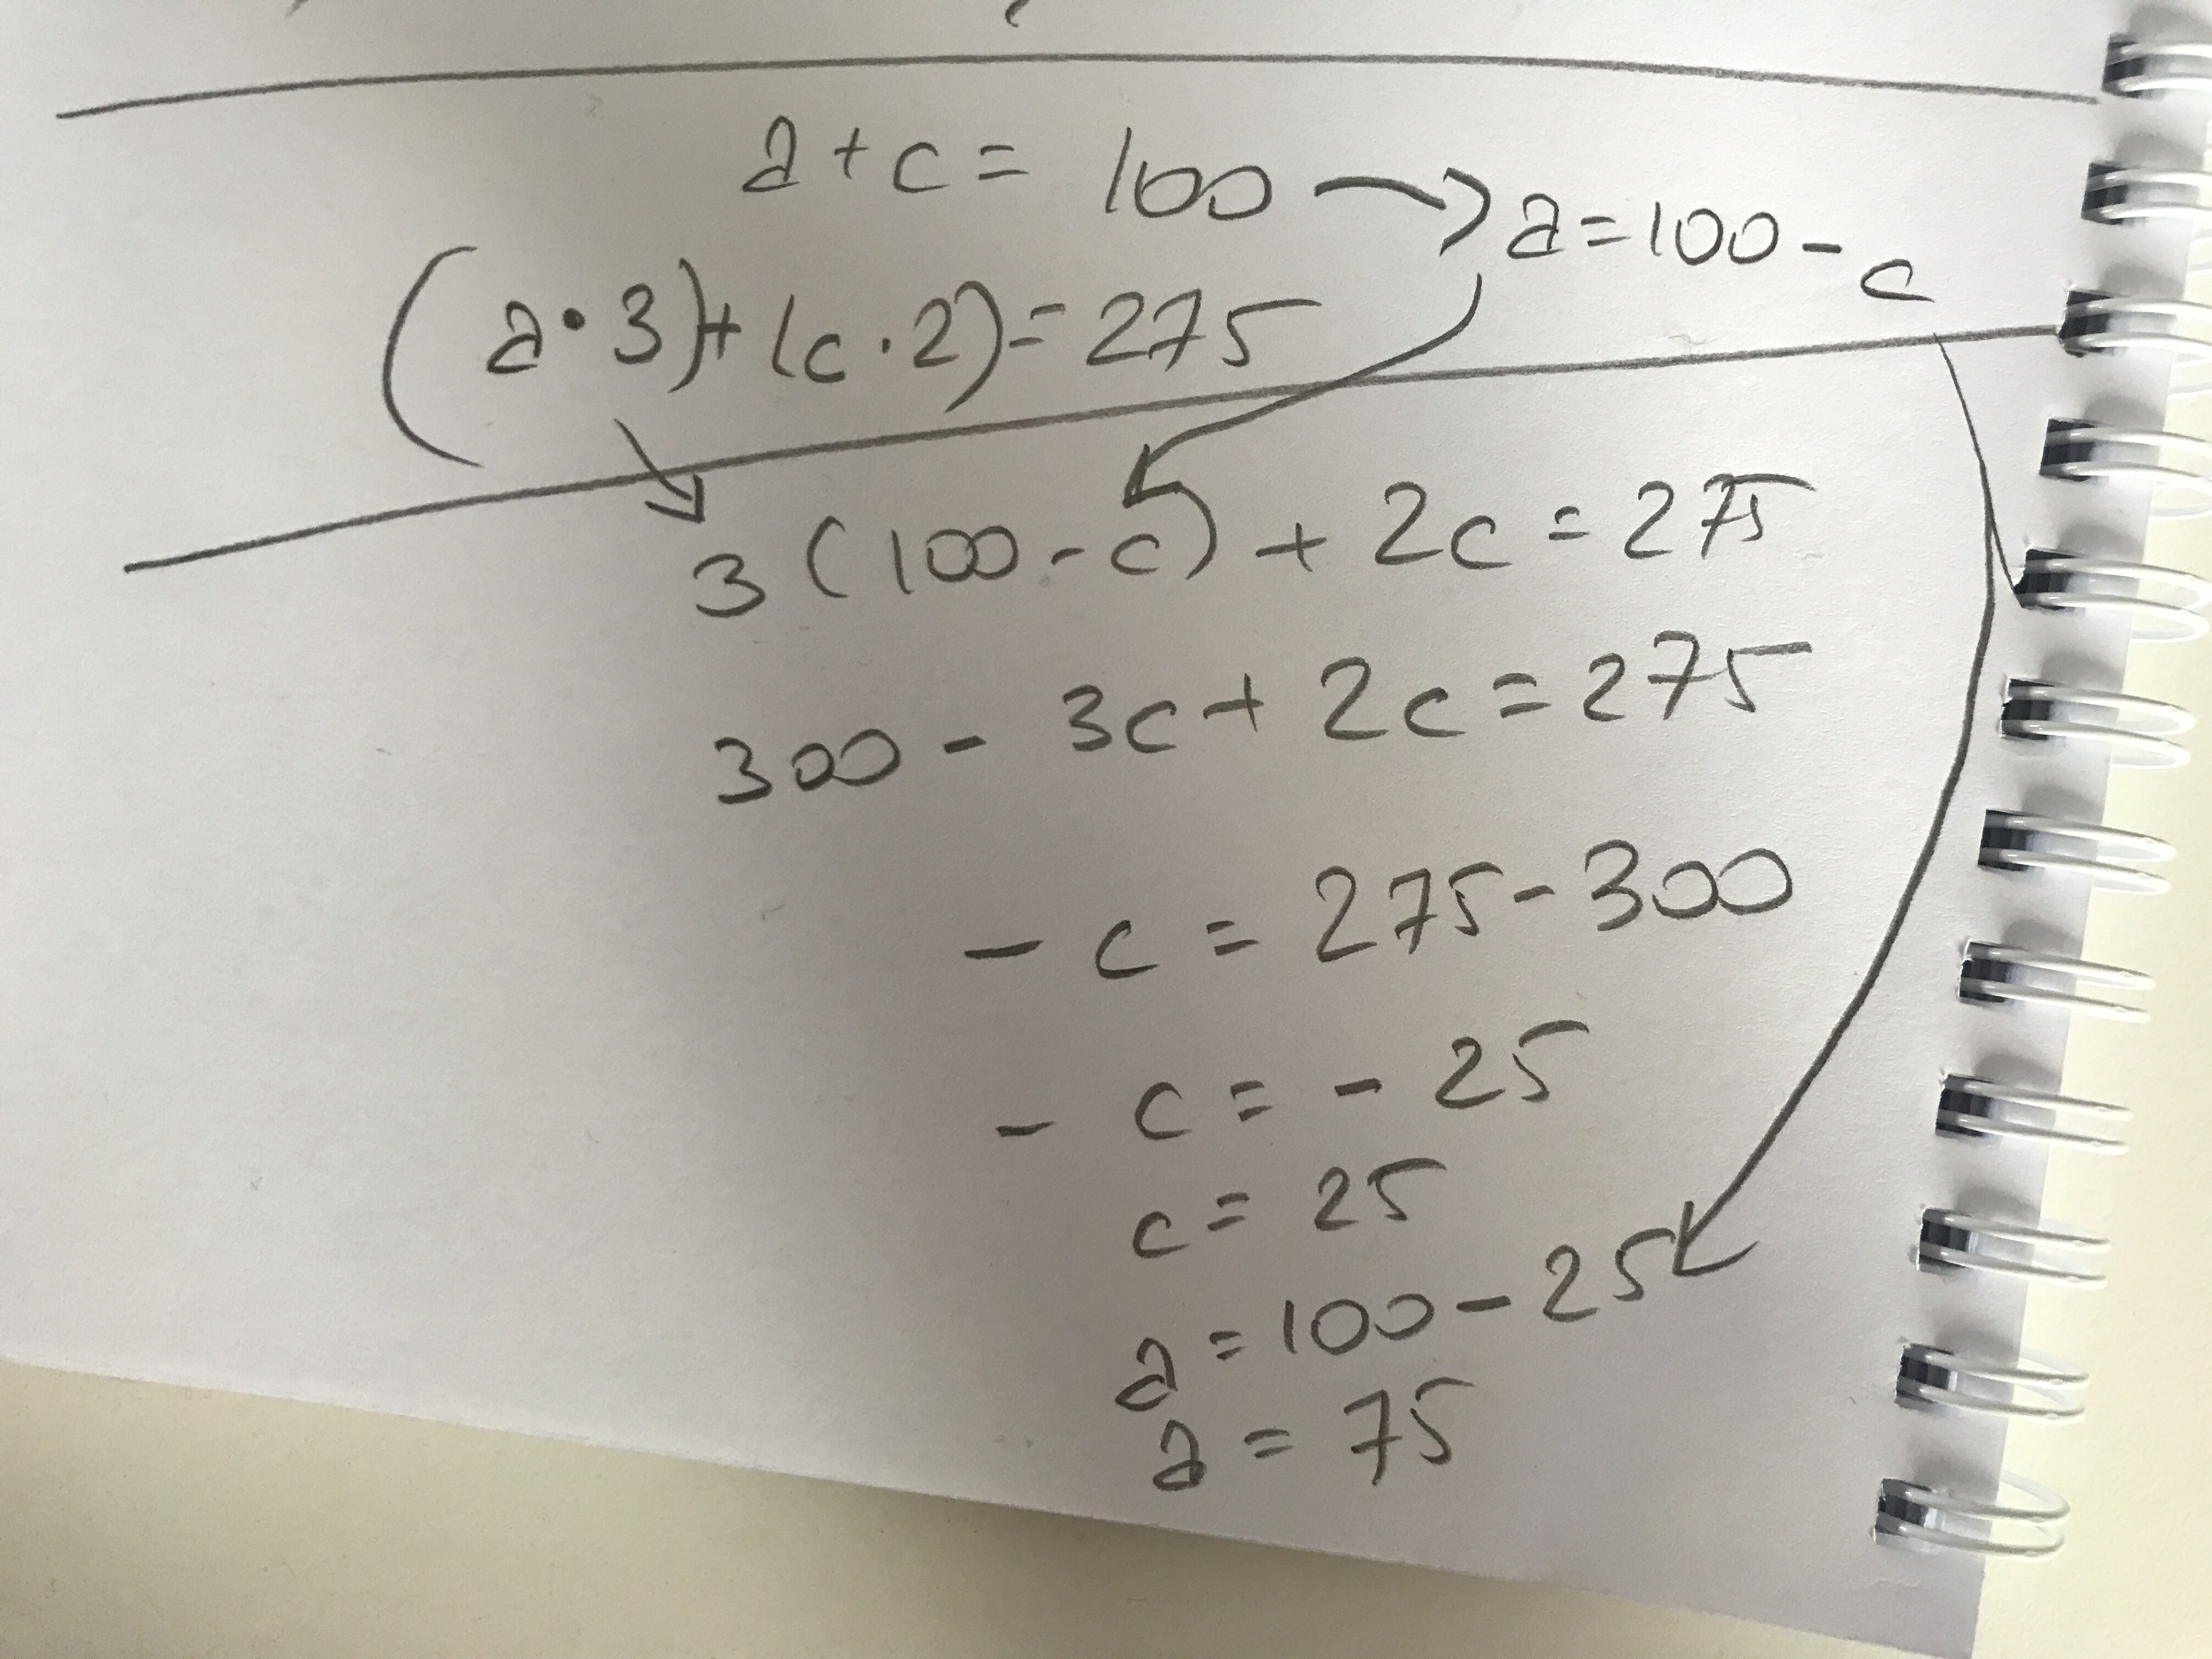 a + c = 100 → a = 100 - c
(a · 3) + (c · 2) = 275
3 (100 - c) + 2c = 275
300 - 3c + 2c = 275
- c = 275 - 300
- c = - 25
c = 25
a = 100 - 25
a = 75